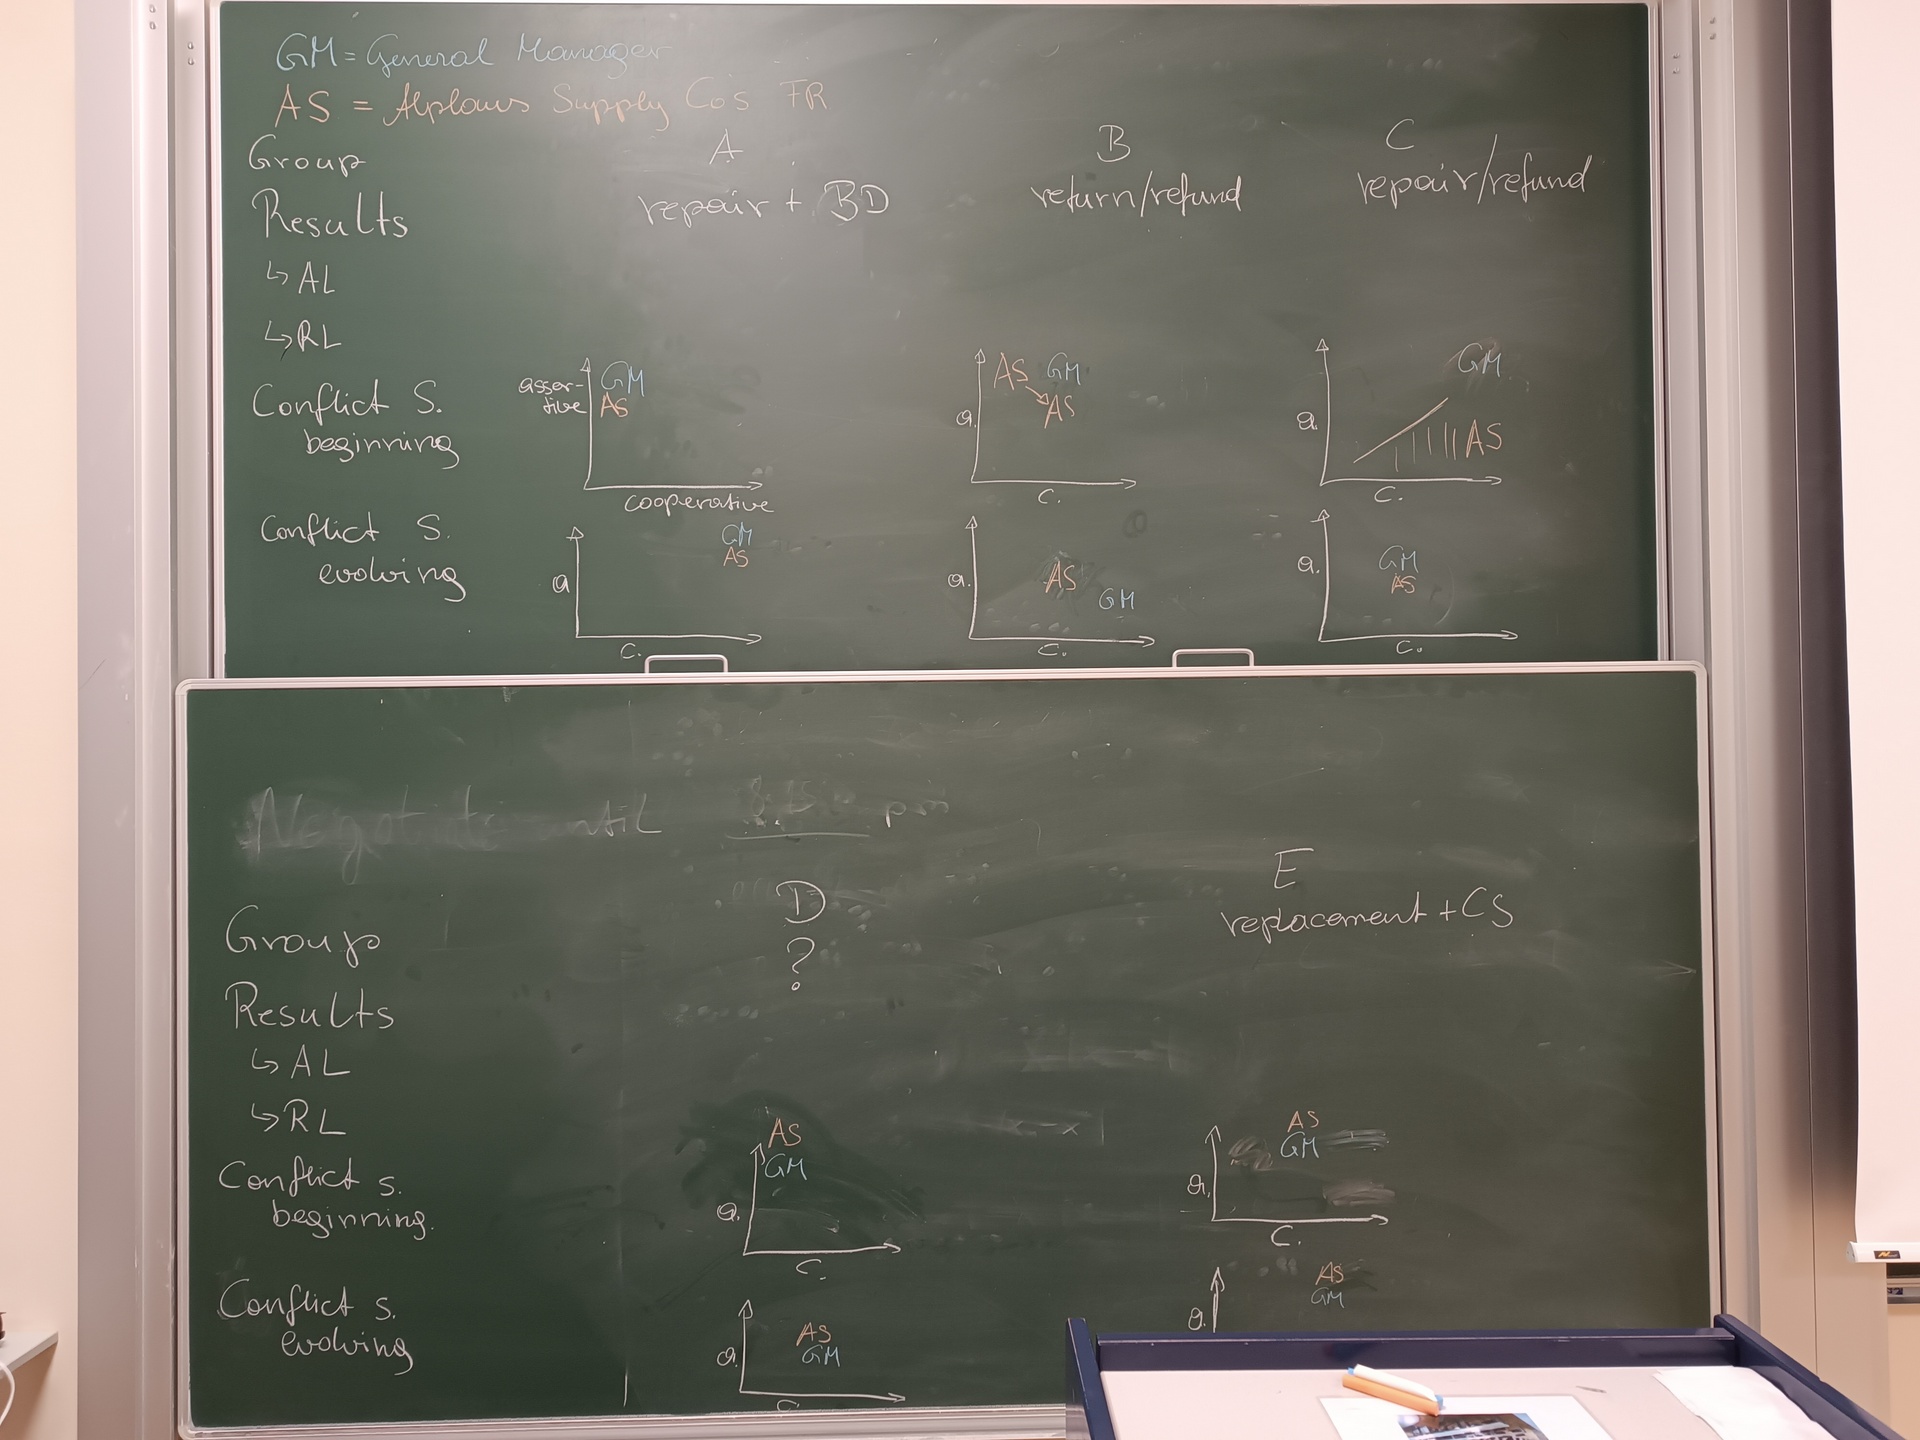 GM = General Manager
AS = Alplaus Supply Co's FR
Group A B C
Results repair + BD return/refund repair/refund
↳ AL
↳ RL
Conflict S.
beginning
asser-
tive
GM
AS
cooperative
a.
AS GM
AS
c.
a.
GM
AS
c.
Conflict S.
evolving
a
GM
AS
c.
a.
AS
GM
c.
a.
GM
AS
c.
Negotiate until 8:15 pm
Group D E
Results ? replacement + CS
↳ AL
↳ RL
Conflict s.
beginning.
AS
GM
a.
c.
AS
GM
a.
c.
Conflict s.
evolving
AS
GM
a.
c.
AS
GM
a.